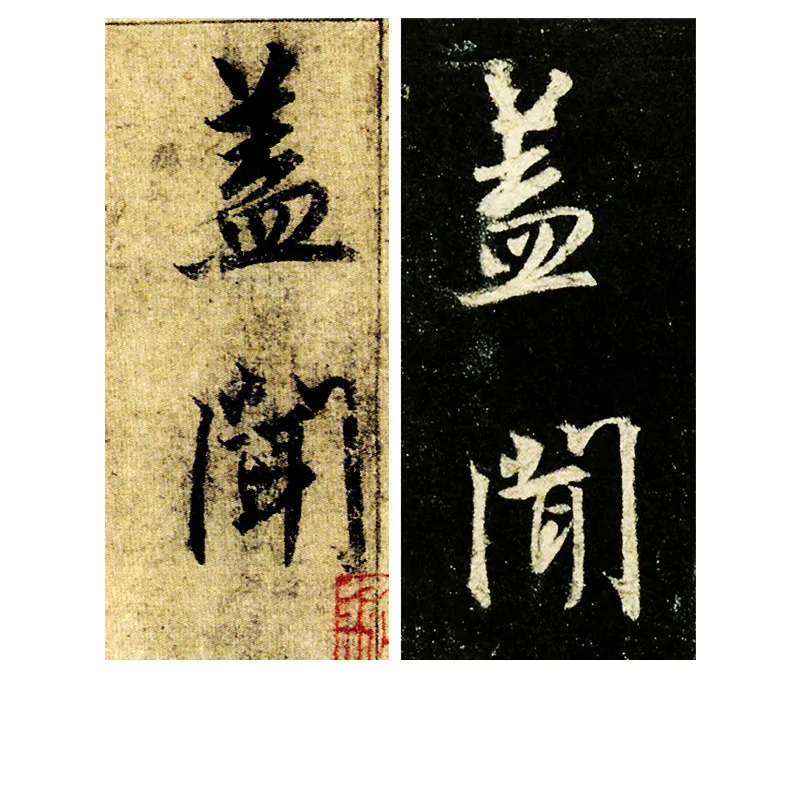 盖聞
盖聞